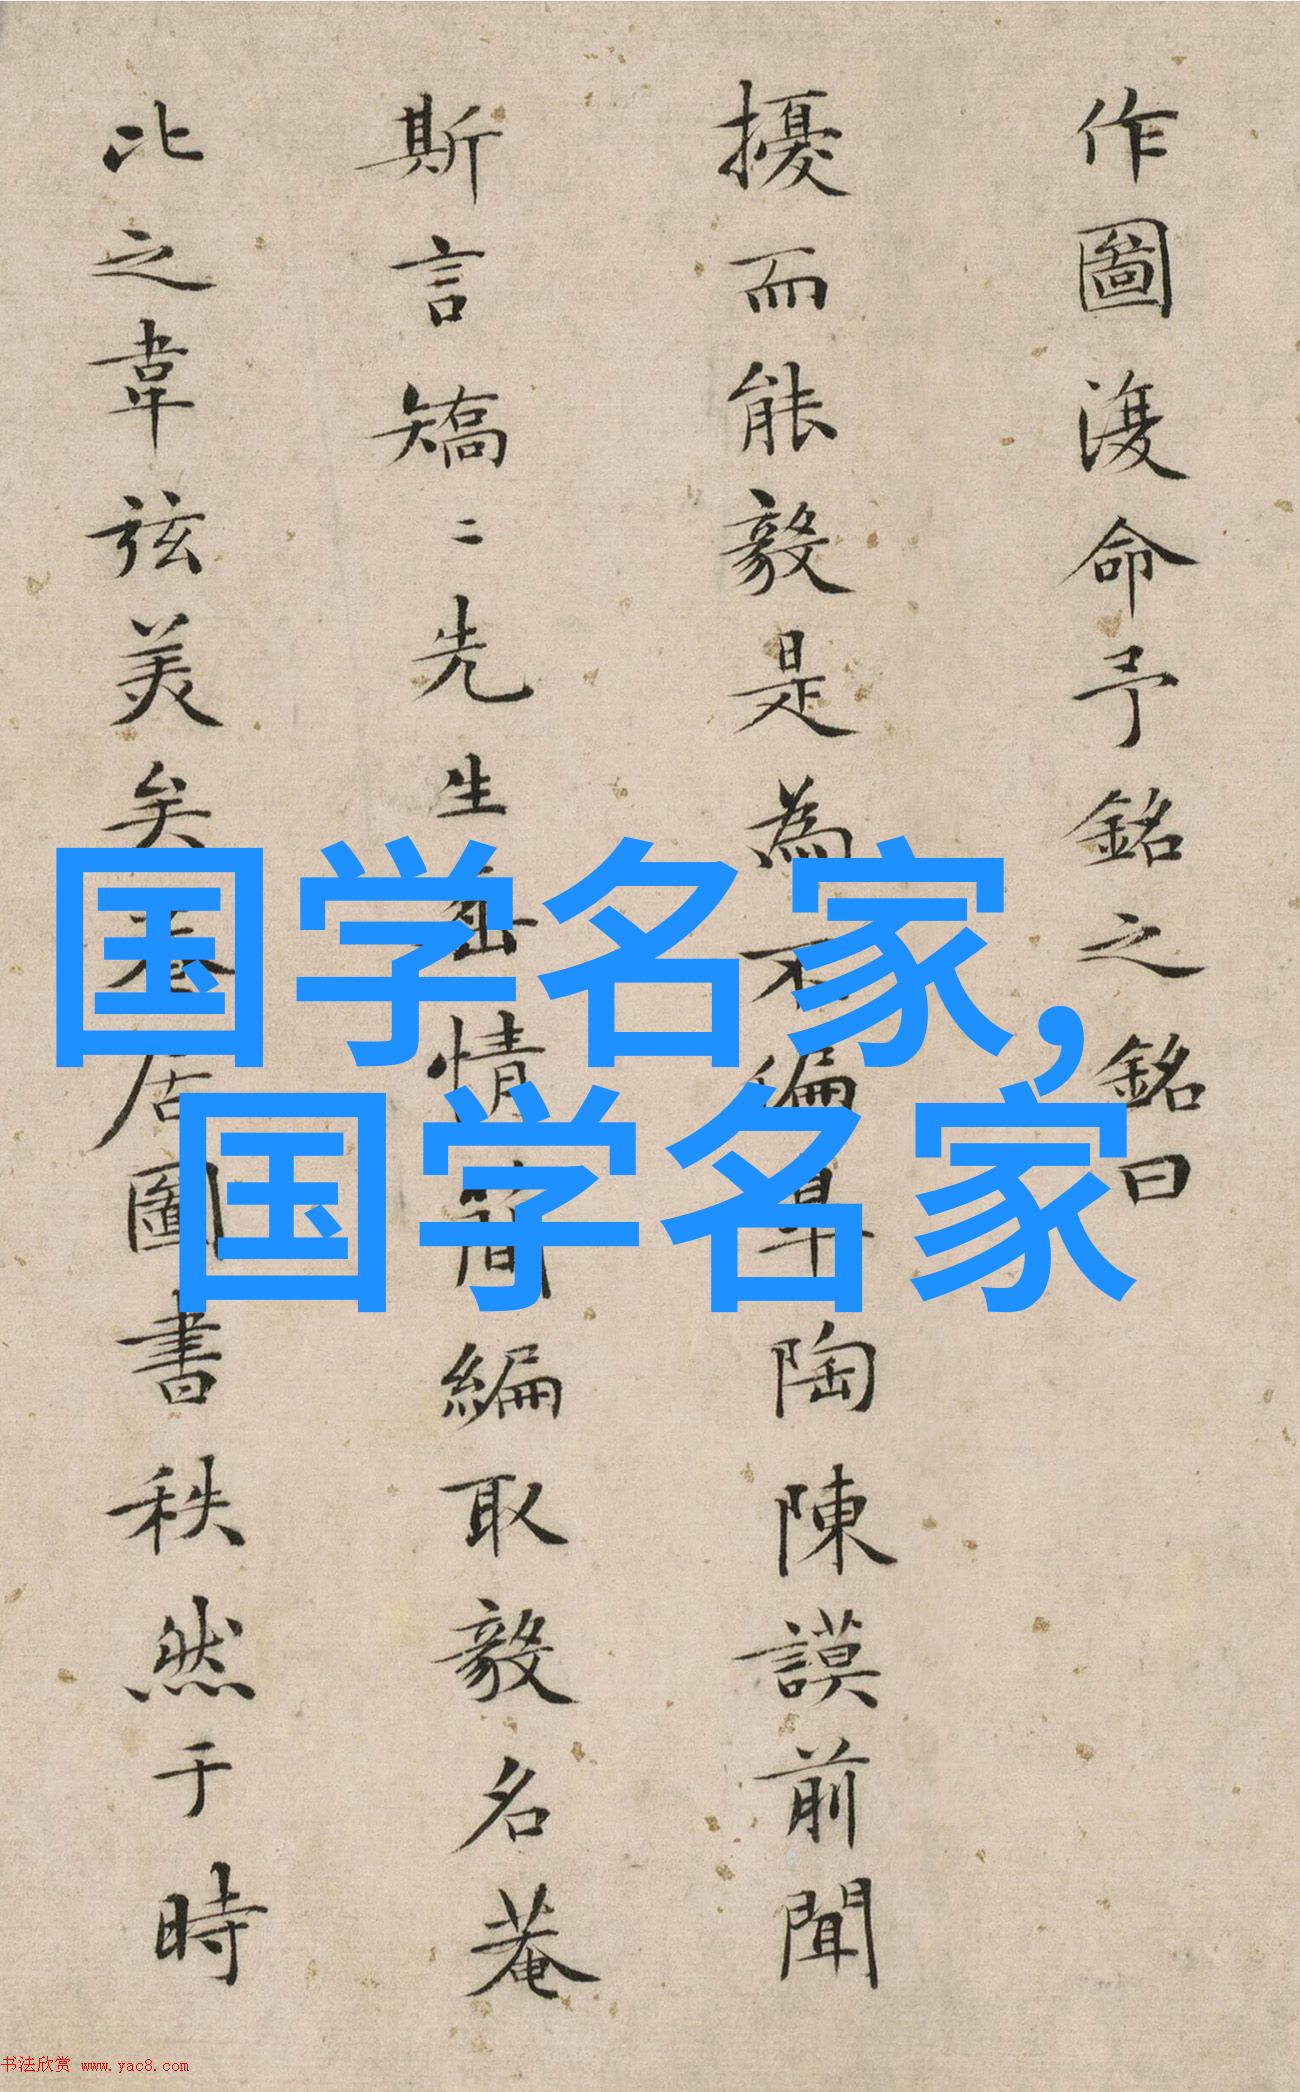 作圖復命予銘之銘曰
擾而能毅是為不偏皋陶陳謨前聞
斯言矯二先生　情簡編取毅名菴
比之韋弦美矣　居圖書秩然于時
国学名家,
国学名家
书法欣赏 www.yac8.com